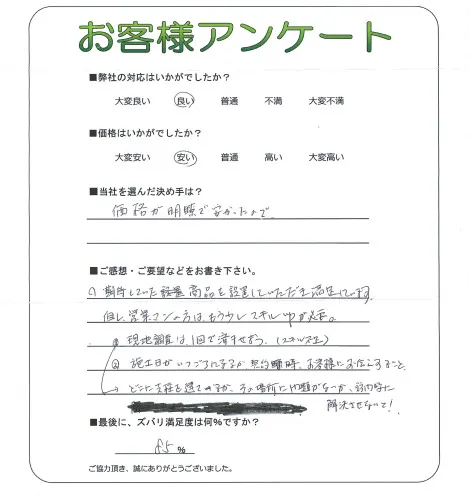 お客様アンケート
■弊社の対応はいかがでしたか?
大変良い 良い 普通 不満 大変不満
■価格はいかがでしたか?
大変安い 安い 普通 高い 大変高い
■当社を選んだ決め手は?
価格が明瞭で安かったので
■ご感想・ご要望などをお書き下さい。
期待していた設置商品を設置していただき満足しています。
但し、営業マンの方はもう少しスキルUPが必要。
現地調査は1回で済ませよう。(スキル不足)
施工日がいつごろになるか、契約時、お客様にお伝えすること
どこに を か、その場所に問題がないか、
解決させないと!
■最後に、ズバリ満足度は何%ですか?
85 %
ご協力頂き、誠にありがとうございました。